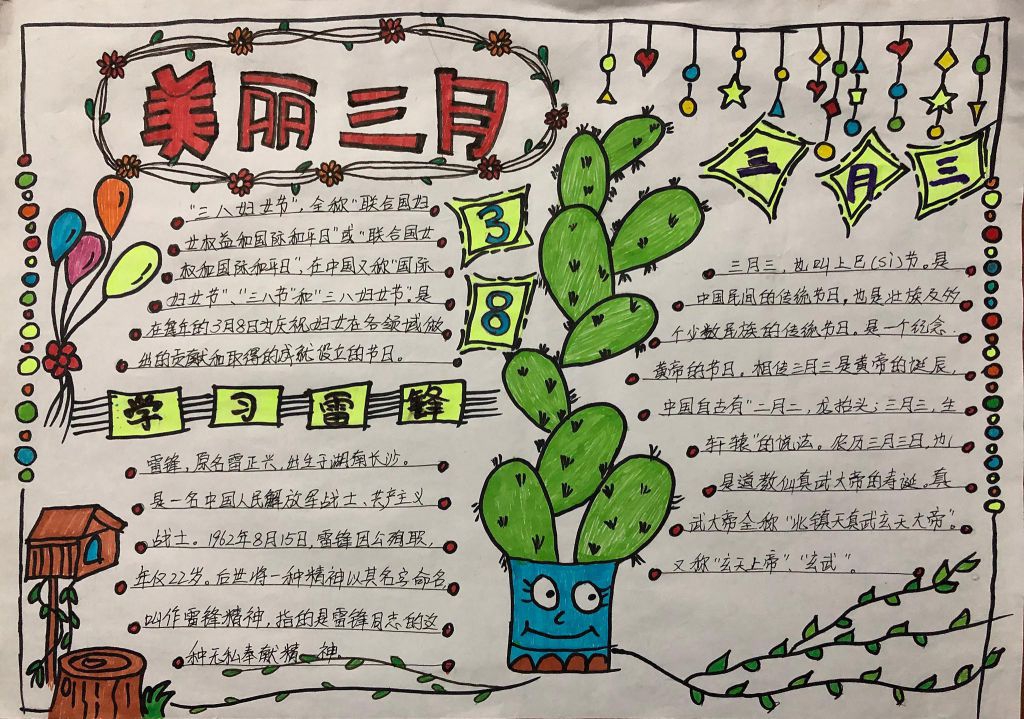 美丽三月
"三八妇女节"，全称"联合国妇
女权益和国际和平日"或"联合国女
权和国际和平日"，在中国又称"国际
妇女节"、"三八节"和"三八妇女节"，是
在每年的3月8日为庆祝妇女在各领域做
出的贡献和取得的成就设立的节日。
3
8
学习雷锋
雷锋，原名雷正兴，出生于湖南长沙。
是一名中国人民解放军战士、共产主义
战士。1962年8月15日，雷锋因公殉职，
年仅22岁。后世将一种精神以其名字命名
叫作雷锋精神，指的是雷锋同志的这
种无私奉献精神。
三月三
三月三，也叫上巳(Sì)节。是
中国民间的传统节日，也是壮族及多
个少数民族的传统节日。是一个纪念
黄帝的节日。相传三月三是黄帝的诞辰，
中国自古有"二月二，龙抬头；三月三，生
轩辕"的说法。农历三月三日，也
是道教仙真武大帝的寿诞。真
武大帝全称"北镇天真武玄天大帝"。
又称"玄天上帝"、"玄武"。